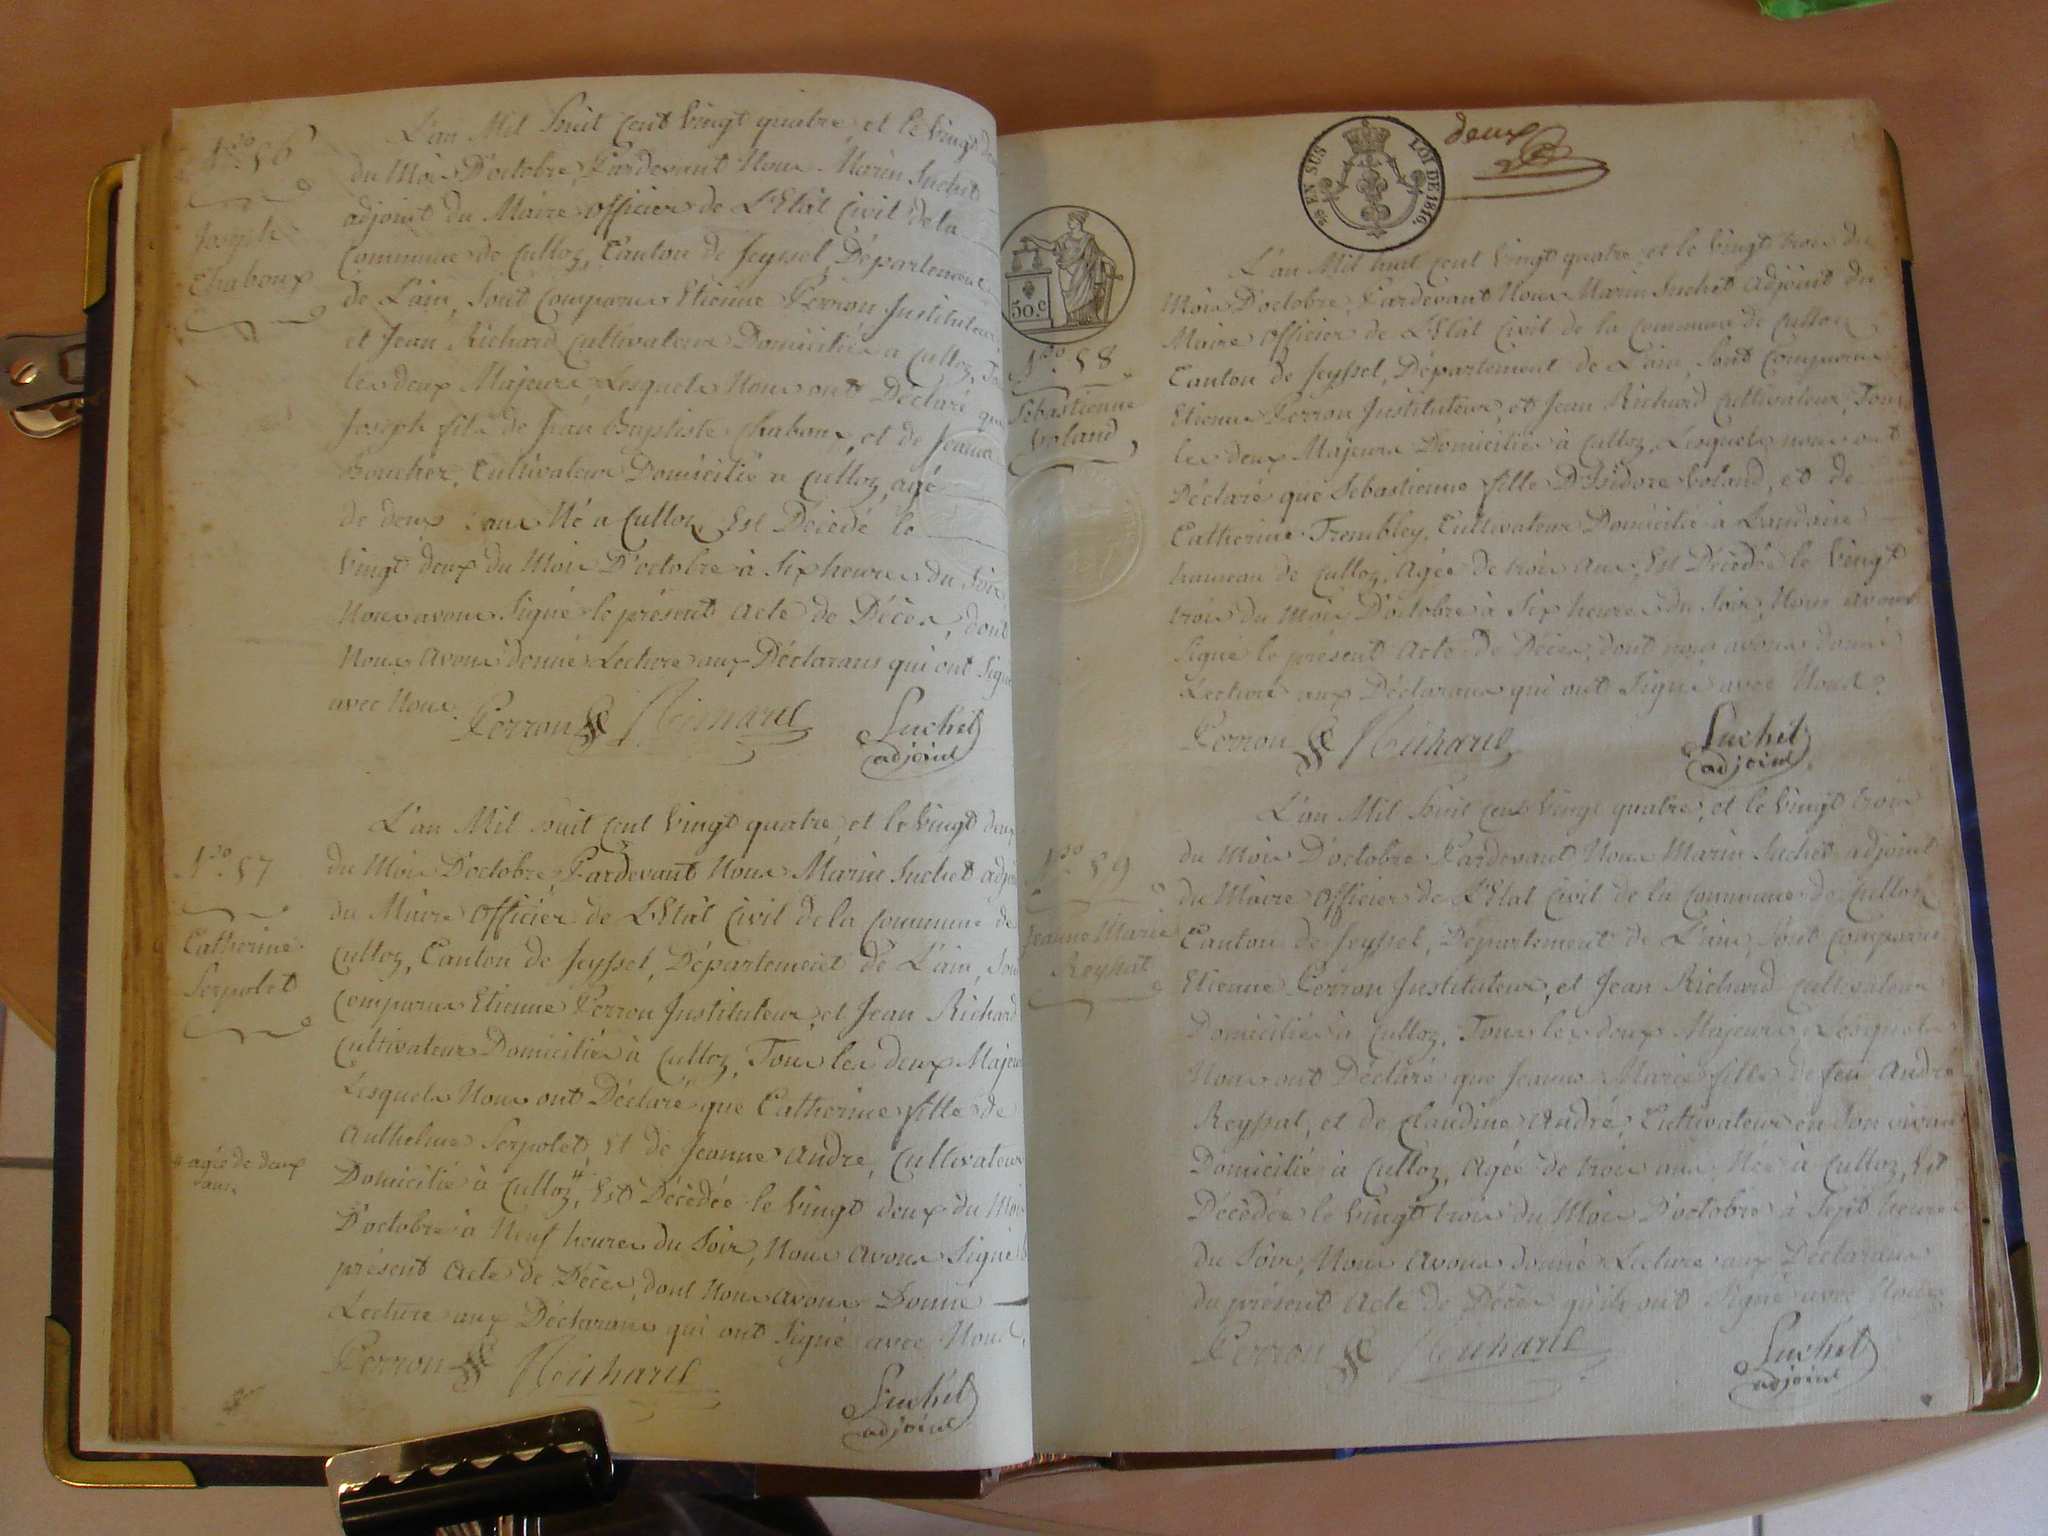 N.ro 56
Joseph
Chaboux
L'an Mil huit cent vingt quatre, et le vingt deux
du Mois D'octobre, Pardevant Nous Marin Suchet
adjoint du Maire officier de L'Etat Civil de la
Commune de Culloz, Canton de Seyssel, Département
de L'ain, Sont Comparus Etienne Perron Instituteur
et Jean Richard Cultivateur Domiciliés a Culloz, Tous
les deux Majeurs, Lesquels Nous ont Déclaré que
Joseph fils de Jean Baptiste Chaboux, et de Jeanne
Cultivateur Domicilié a Culloz, agé
de deux ans Né a Culloz, Est Décédé le
vingt deux du Mois D'octobre à Six heures du Soir
Nous avons Signé le présent acte de Décès, dont
Nous avons donné Lecture aux Déclarans qui ont Signé
avec Nous.
Perron Richard Suchet
adjoint
N.ro 57
Catherine
Serpolet
L'an Mil huit cent vingt quatre, et le vingt deux
du Mois D'octobre, Pardevant Nous Marin Suchet adjoint
du Maire officier de L'Etat Civil de la Commune de
Culloz, Canton de Seyssel, Département de L'ain, Sont
Comparus Etienne Perron Instituteur, et Jean Richard
Cultivateur Domiciliés à Culloz, Tous les deux Majeurs
Lesquels Nous ont Déclaré que Catherine fille de
Anthelme Serpolet, et de Jeanne André, Cultivateur
Domicilié à Culloz,# Est Décédée le vingt deux du Mois
# agée de deux
ans
D'octobre à Neuf heures du Soir, Nous avons Signé le
présent acte de Décès, dont Nous avons Donné
Lecture aux Déclarans qui ont Signé avec Nous.
Perron Richard Suchet
adjoint
EN SUS LOI DE 1816.
deux
50.c
N.ro 58
Sebastienne
Voland
L'an Mil huit cent vingt quatre, et le vingt trois du
Mois D'octobre, Pardevant Nous Marin Suchet adjoint du
Maire officier de L'Etat Civil de la Commune de Culloz
Canton de Seyssel, Département de L'ain, Sont Comparus
Etienne Perron Instituteur, et Jean Richard Cultivateur, Tous
les deux Majeurs Domiciliés à Culloz, Lesquels nous ont
Déclaré que Sebastienne fille D'Isidore Voland, et de
Catherine Trembley, Cultivateur Domicilié à Landaize
hameau de Culloz, Agée de trois ans, Est Décédée le vingt
trois du Mois D'octobre à Six heures du Soir, Nous avons
Signé le présent Acte de Décès, dont nous avons donné
Lecture aux Déclarans qui ont Signé avec Nous.
Perron Richard Suchet
adjoint
N.ro 59
Jeanne Marie
Reypat
L'an Mil huit cent vingt quatre, et le vingt trois
du Mois D'octobre Pardevant Nous Marin Suchet adjoint
du Maire officier de L'Etat Civil de la Commune de Culloz
Canton de Seyssel, Département de L'ain, Sont Comparus
Etienne Perron Instituteur, et Jean Richard Cultivateur
Domiciliés à Culloz, Tous les deux Majeurs, Lesquels
Nous ont Déclaré que Jeanne Marie fille de feu André
Reypat, et de Claudine André, Cultivateur en Son vivant
Domicilié à Culloz, Agée de trois ans, Née à Culloz, Est
Décédée le vingt trois du Mois D'octobre à Sept heures
du Soir, Nous avons donné Lecture aux Déclarans
du présent Acte de Décès qu'ils ont Signé avec Nous.
Perron Richard Suchet
adjoint